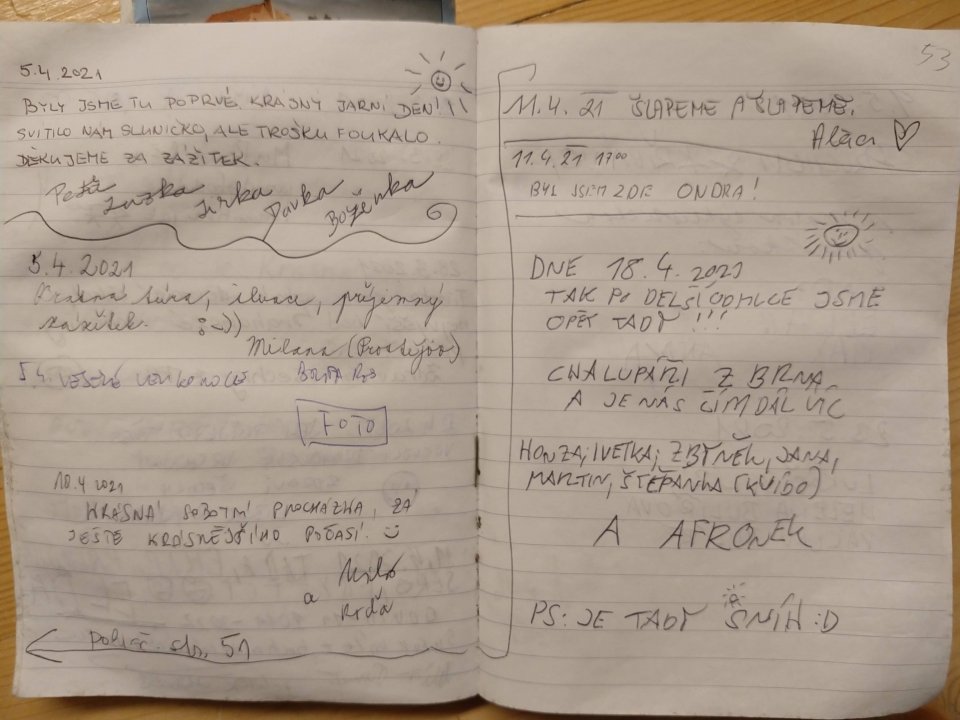 5.4.2021
BYLY JSME TU POPRVÉ. KRÁSNÝ JARNÍ DEN!!!
SVÍTILO NÁM SLUNÍČKO, ALE TROŠKU FOUKALO.
DĚKUJEME ZA ZÁŽITEK.
Peťa Zuzka Jirka Davka Boženka
5.4.2021
Krásná túra, , příjemný
zážitek. ;-))
Milana (Prostějov)
5.4. VESELÉ VELIKONOCE
FOTO
10.4 2021
KRÁSNÁ SOBOTNÍ PROCHÁZKA, ZA
JEŠTĚ KRÁSNĚJŠÍHO POČASÍ. :)
a
Pokrač. str. 51
53
11.4.21 ŠLAPEME A ŠLAPEME.
11.4.21 17:00
BYL JSEM ZDE ONDRA!
DNE 18.4.2021
TAK PO DELŠÍ ODMLCE JSME
OPĚT TADY !!!
CHALUPÁŘI Z BRNA
A JE NÁS ČÍM DÁL VÍC
HONZA, IVETKA, ZBYNĚK, JANA,
MARTIN, ŠTĚPÁNKA (KVÍDO)
A AFRONEK
PS: JE TADY SNÍH :D